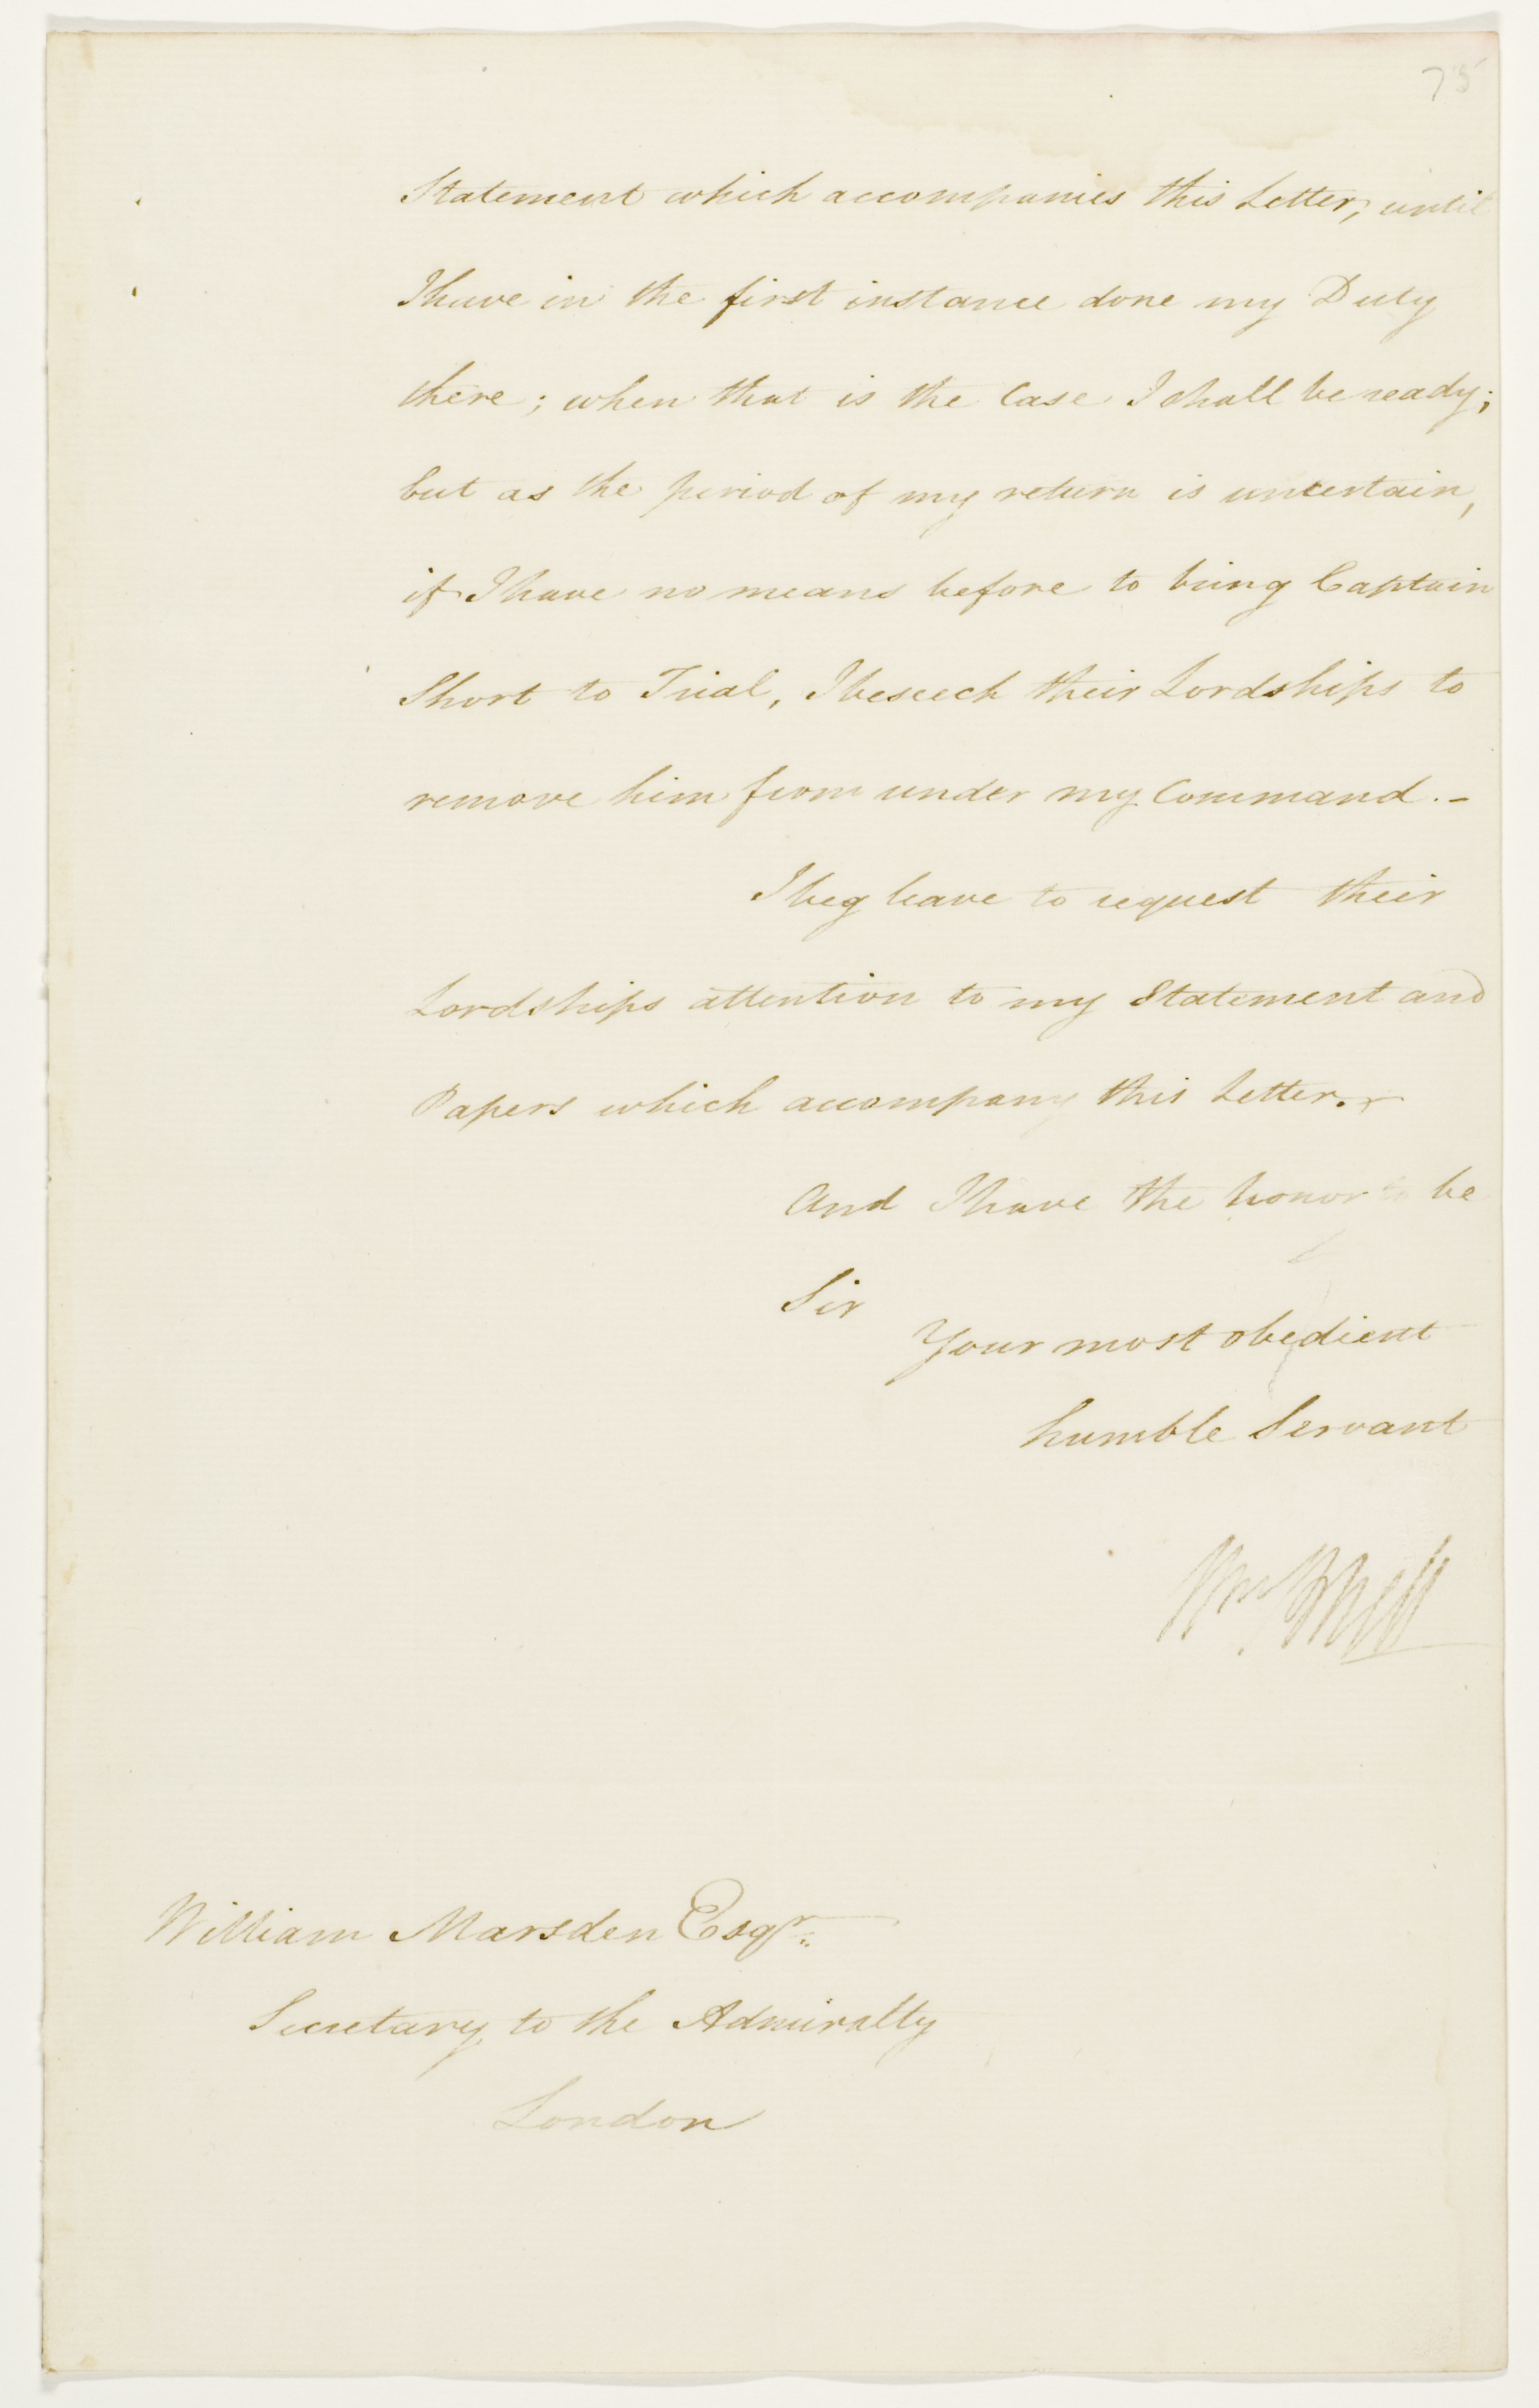 75
Statement which accompanies this Letter, until
I have in the first instance done my Duty
there; when that is the Case I shall be ready;
but as the period of my return is uncertain,
if I have no means before to bring Captain
Short to Trial, I beseech their Lordships to
remove him from under my Command.-
I beg leave to request their
Lordships attention to my Statement and
Papers which accompany this Letter.-
And I have the honor to be
Sir
Your most obedient
humble Servant
Wm Bligh
William Marsden Esqr.
Secretary to the Admiralty
London